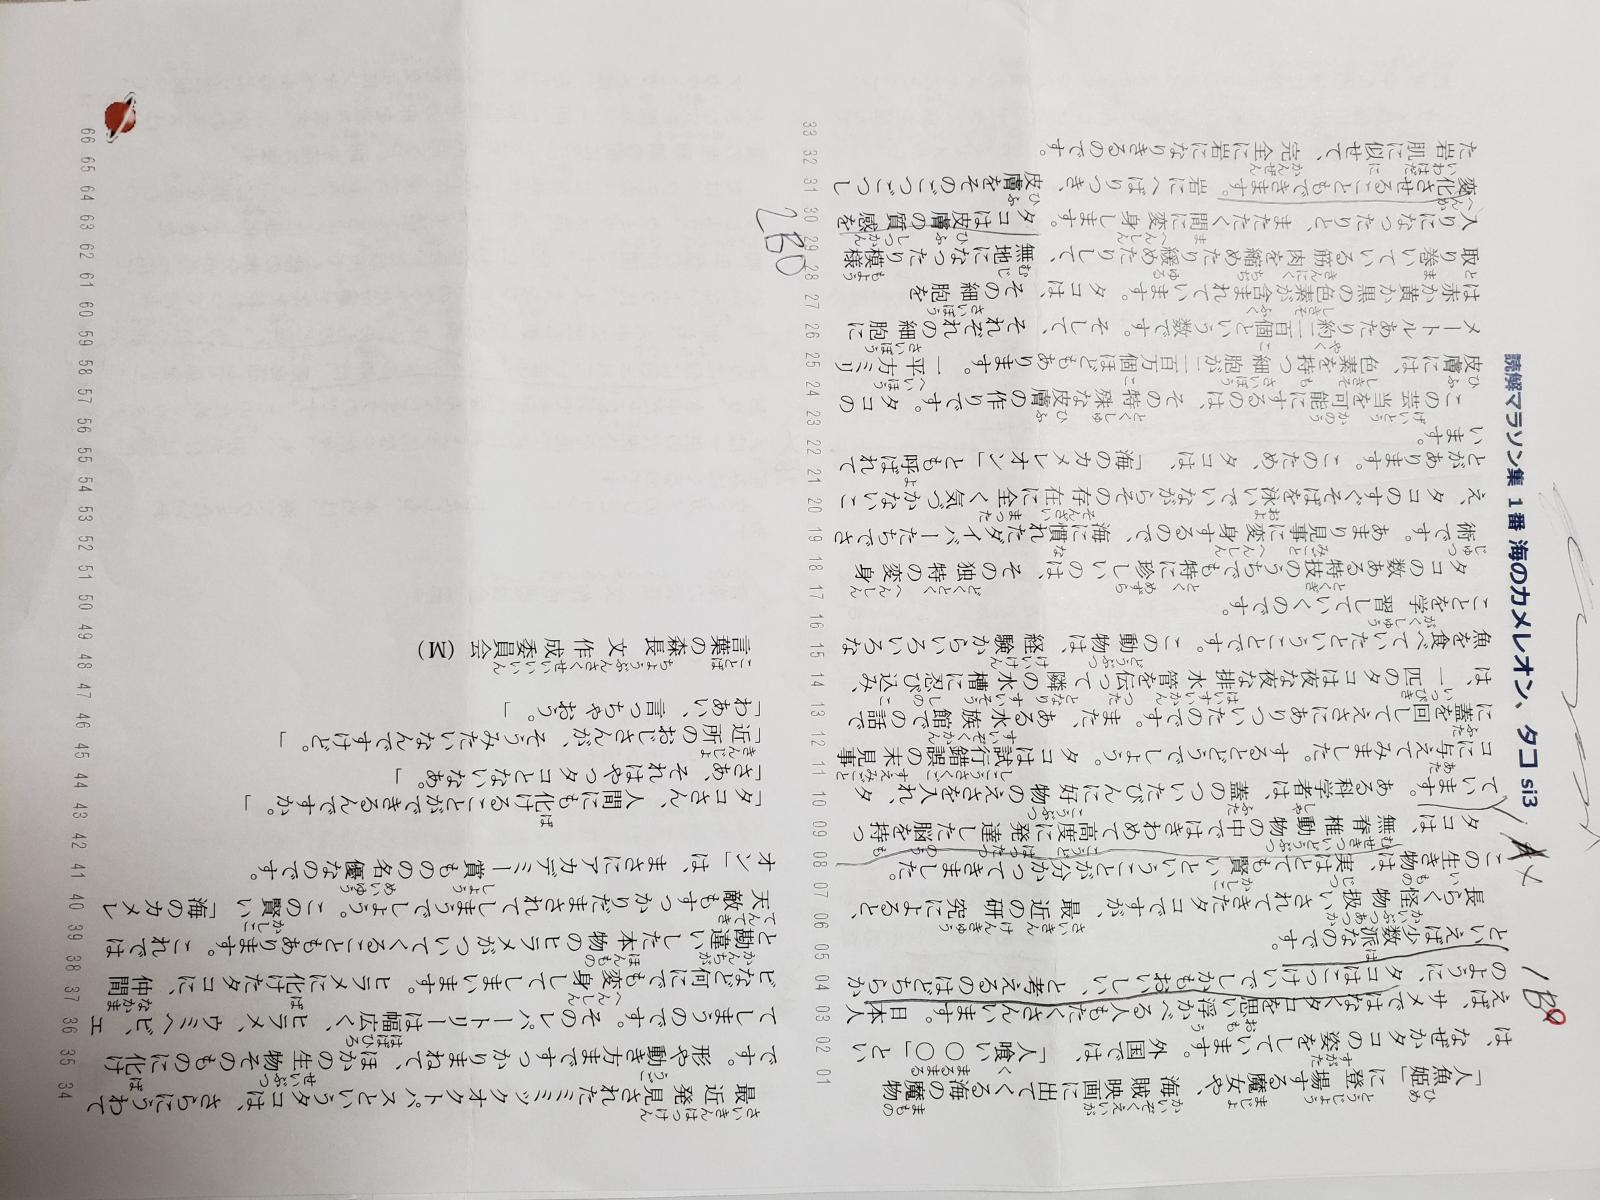 読解マラソン集 1番 海のカメレオン、タコ si3
「人魚姫」に登場する魔女や、海賊映画に出てくる海の魔物
は、なぜかタコの姿をしています。外国では、「人喰い〇〇」とい
えば、サメではなくタコを思い浮かべる人もたくさんいます。日本人
のように、タコはこっけいでかしおもいしい、と考えるのはどちらか
といえば少数派なのです。
長らく怪物扱いされてきたタコですが、最近の研究によると、
この生き物は、実はとても賢いということが分かってきました。
タコは、無脊椎動物の中ではきわめて高度に発達した脳を持っ
ています。ある科学者は、蓋のついたびんに好物のえさを入れ、タ
コに与えてみました。するとどうでしょう。タコは試行錯誤の末見事
に蓋を回してえさにありついたのです。また、ある水族館での話で
は、一匹のタコは夜な夜な排水管を伝って隣の水槽に忍び込み、
魚を食べていたということです。この動物は、経験からいろいろな
ことを学習していくのです。
タコの数ある特技のうちでも特に珍しいのは、その独特の変身
術です。あまり見事に変身するので、海に慣れたダイバーたちでさ
え、タコのすぐそばを泳いでいながらその存在に全く気づかないこ
とがあります。このため、タコは、「海のカメレオン」とも呼ばれて
います。
この芸当を可能にするのは、その特殊な皮膚の作りです。タコの
皮膚には、色素を持つ細胞が二百万個ほどもあります。一平方ミリ
メートルあたり約二百個という数です。そして、それぞれの細胞に
は赤か黄か黒の色素が含まれています。タコは、その細胞を
取り巻いている筋肉を縮めたり緩めたりして、無地になったり模様
入りになったりと、またたく間に変身します。タコは皮膚の質感を
変化させることもできます。岩にへばりつき、皮膚をそのごつごつし
た岩肌に似せて、完全に岩になりきるのです。
01 02 03 04 05 06 07 08 09 10 11 12 13 14 15 16 17 18 19 20 21 22 23 24 25 26 27 28 29 30 31 32 33
最近発見されたミミックオクトパスというタコは、さらにうわて
です。形や動き方まですっかりまねて、ほかの生物そのものに化け
てしまうのです。そのレパートリーは幅広く、ヒラメ、ウミヘビ、エ
ビなど何にでも変身してしまいます。ヒラメに化けたタコに、仲間
と勘違いした本物のヒラメがついてくることもあります。これでは
天敵もすっかりだまされてしまうでしょう。この賢い「海のカメレ
オン」は、まさにアカデミー賞ものの名優なのです。
「タコさん、人間にも化けることができるんですか。」
「さあ、それはやったことないなあ。」
「近所のおじさんが、そうみたいなんですけど。」
「わあい、言っちゃおう。」
言葉の森長文作成委員会(M)
34 35 36 37 38 39 40 41 42 43 44 45 46 47 48 49 50 51 52 53 54 55 56 57 58 59 60 61 62 63 64 65 66